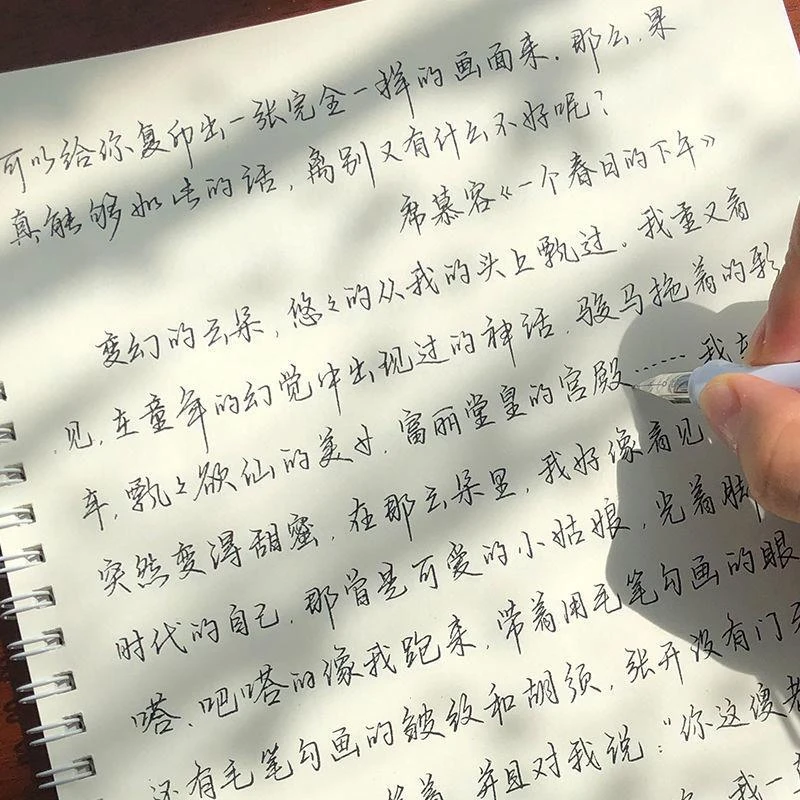 可以给你复印出一张完全一样的画面来。那么,果
真能够如此的话,离别又有什么不好呢?
席慕容《一个春日的下午》
变幻的云朵,悠々的从我的头上飘过。我重又看
见,在童年的幻觉中出现过的神话,骏马拖着的彩
车,飘々欲仙的美女,富丽堂皇的宫殿……我
突然变得甜蜜,在那云朵里,我好像看见
时代的自己,那曾是可爱的小姑娘,光着脚
嗒、吧嗒的像我跑来,带着用毛笔勾画的眼
还有毛笔勾画的皱纹和胡须,张开没有门牙
着,并且对我说:“你这傻老
我一